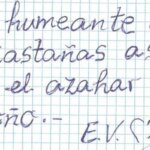 humeante
castañas as
el azahar
ño.-
E.V.